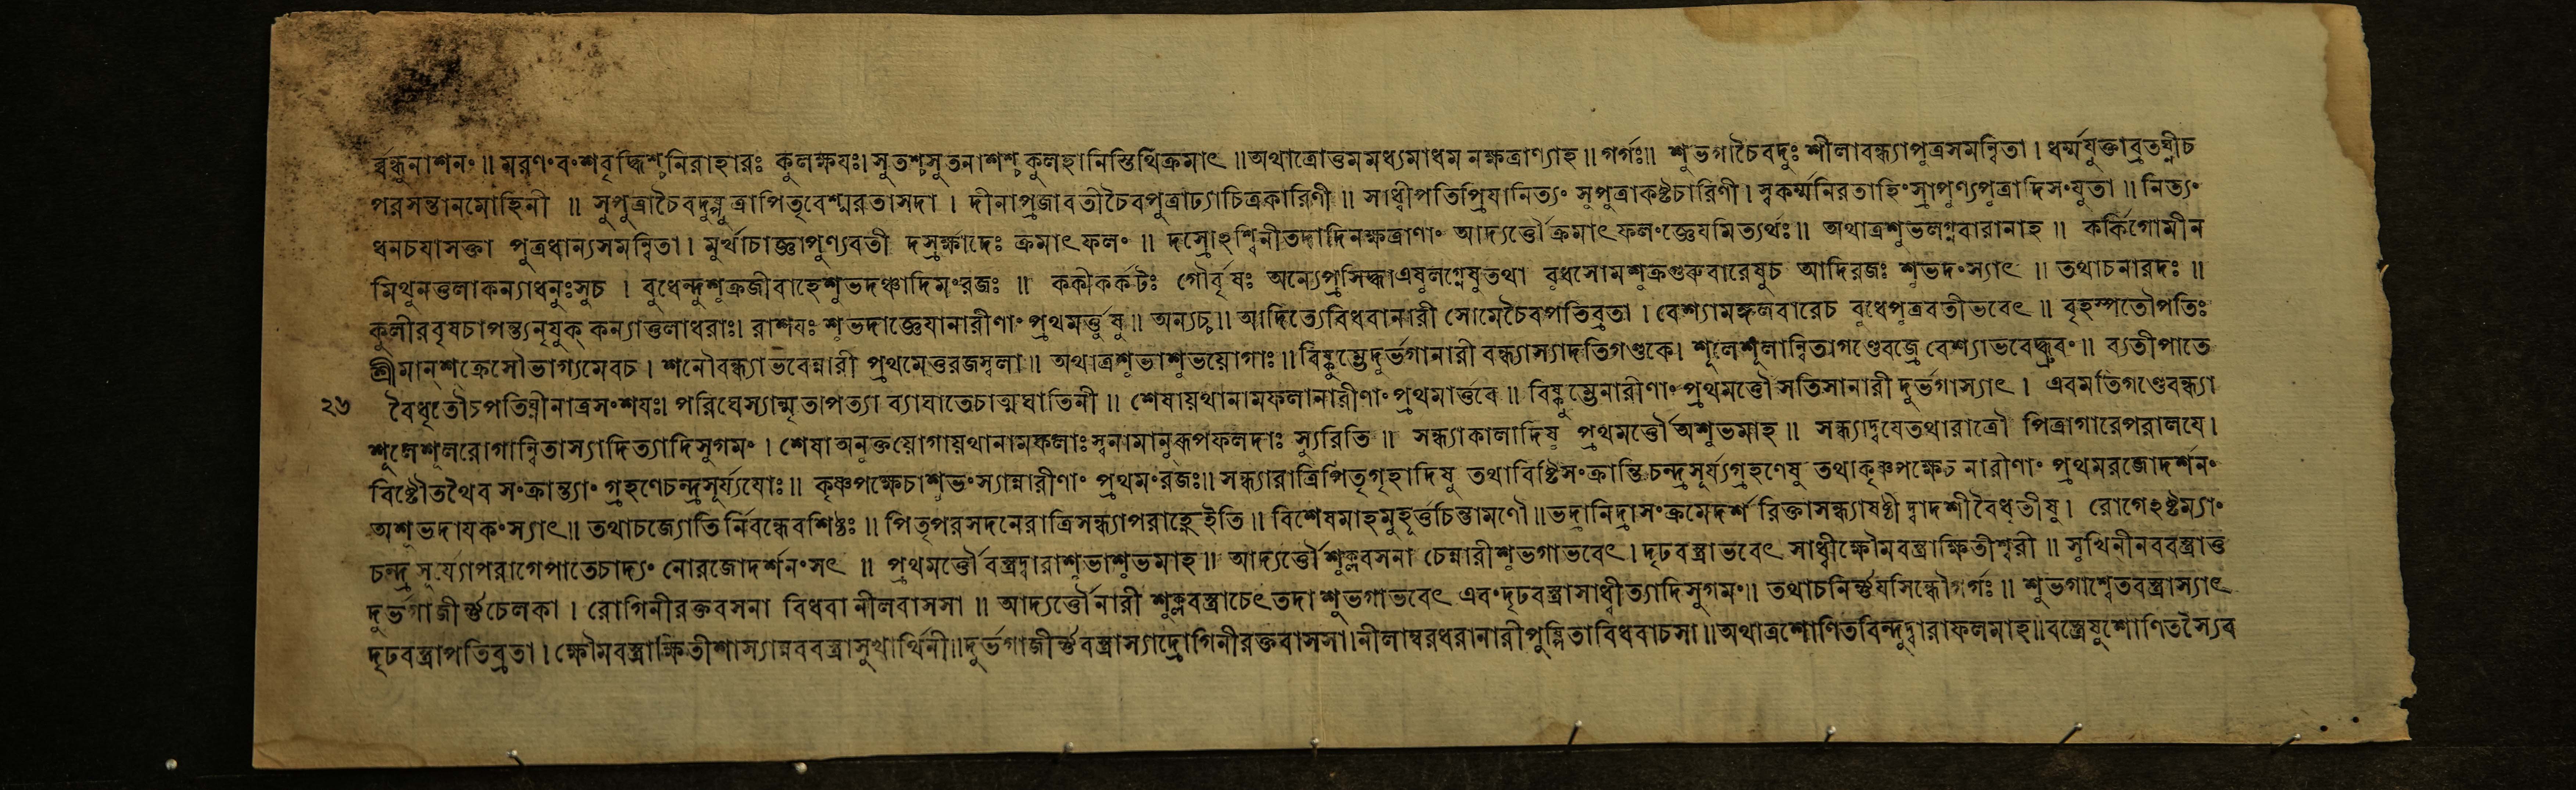 র্ব্বন্ধুনাশনং॥ মরণংবংশবৃদ্ধিশ্চনিরাহারঃ কুলক্ষযঃ। সুতশ্চসুতনাশশ্চ কুলহানিস্তিথিক্রমাৎ॥ অথাত্রোত্তমমধ্যমাধম নক্ষত্রাণ্যাহ॥ গর্গঃ॥ শুভগাচৈবদুঃ শীলাবন্ধ্যাপুত্রসমন্বিতা। ধর্ম্মযুক্তাব্রতঘ্নীচ
পরসন্তানমোহিনী॥ সুপুত্রাচৈবদুষ্পুত্রাপিতৃবেশ্মরতাসদা। দীনাপ্রজাবতীচৈবপুত্রাঢ্যাচিত্রকারিণী॥ সাধ্বীপতিপ্রিযানিত্যং সুপুত্রাকষ্টচারিণী। স্বকর্ম্মনিরতাহিংস্রাপুণ্যপুত্রাদিসংযুতা॥ নিত্যং
ধনচযাসক্তা পুত্রধান্যসমন্বিতা। মুর্খাচাজ্ঞাপুণ্যবতী দস্রর্ক্ষাদেঃ ক্রমাৎফলং॥ দস্রোঽশ্বিনীতদাদিনক্ষত্রাণাং আদ্যর্ত্তৌক্রমাৎফলংজ্ঞেযমিত্যর্থঃ॥ অথাত্রশুভলগ্নবারানাহ॥ কর্কিগোমীন
মিথুনতুলাকন্যাধনুঃসুচ। বুধেন্দুশুক্রজীবাহেশুভদঞ্চাদিমংরজঃ॥ কর্কীকর্কটঃ গৌর্বৃষঃ অন্যেপ্রসিদ্ধাএষুলগ্নেষুতথা বুধসোমশুক্রগুরুবারেষুচ আদিরজঃ শুভদংস্যাৎ॥ তথাচনারদঃ॥
কুলীরবৃষচাপন্ত্যনৃযুক্ কন্যাতুলাধরাঃ। রাশযঃ শুভদাজ্ঞেযানারীণাং প্রথমর্ত্তুষু॥ অন্যচ্চ॥ আদিত্যেবিধবানারী সোমেচৈবপতিব্রতা। বেশ্যামঙ্গলবারেচ বুধেপুত্রবতীভবেৎ॥ বৃহস্পতৌপতিঃ
শ্রীমান্শুক্রেসৌভাগ্যমেবচ। শনৌবন্ধ্যাভবেন্নারী প্রথমেতুরজস্বলা॥ অথাত্রশুভাশুভয়োগাঃ॥ বিষ্কুম্ভেদুর্ভগানারী বন্ধ্যাস্যাদতিগণ্ডকে। শূলেশূলান্বিতাগণ্ডেবজ্রে বেশ্যাভবেদ্ধ্রুবং॥ ব্যতীপাতে
২৬ বৈধৃতৌচপতিঘ্নীনাত্রসংশযঃ। পরিঘেস্যান্মৃতাপত্যা ব্যাঘাতেচাত্মঘাতিনী॥ শেষায়থানামফলানারীণাং প্রথমার্ত্তবে॥ বিষ্কুম্ভেনারীণাং প্রথমর্ত্তৌ সতিসানারী দুর্ভগাস্যাৎ। এবমতিগণ্ডেবন্ধ্যা
শূলেশূলরোগান্বিতাস্যাদিত্যাদিসুগমং। শেষাঅনুক্তয়োগায়থানামফলাঃস্বনামানুরূপফলদাঃ স্যুরিতি॥ সন্ধ্যাকালাদিষু প্রথমর্ত্তৌঅশুভমাহ॥ সন্ধ্যাদ্বযেতথারাত্রৌ পিত্রাগারেপরালযে।
বিষ্টৌতথৈব সংক্রান্ত্যাং গ্রহণেচন্দ্রসূর্য্যযোঃ॥ কৃষ্ণপক্ষেচাশুভংস্যান্নারীণাং প্রথমংরজঃ॥ সন্ধ্যারাত্রিপিতৃগৃহাদিষু তথাবিষ্টিসংক্রান্তিচন্দ্রসূর্য্যগ্রহণেষু তথাকৃষ্ণপক্ষেচ নারীণাং প্রথমরজোদর্শনং
অশুভদাযকংস্যাৎ॥ তথাচজ্যোতির্নিবন্ধেবশিষ্ঠঃ॥ পিতৃপরসদনেরাত্রিসন্ধ্যাপরাহ্ণেইতি॥ বিশেষমাহমুহূর্ত্তচিন্তামণৌ॥ ভদ্রানিদ্রাসংক্রমেদর্শ রিক্তাসন্ধ্যাষষ্ঠী দ্বাদশীবৈধৃতীষু। রোগেঽষ্টম্যাং
চন্দ্র সূর্য্যোপরাগেপাতেচাদ্যং নোরজোদর্শনংসৎ॥ প্রথমর্ত্তৌ বস্ত্রদ্বারাশুভাশুভমাহ॥ আদ্যর্ত্তৌ শুক্লবসনা চেন্নারীশুভগাভবেৎ। দৃঢবস্ত্রাভবেৎ সাধ্বীক্ষৌমবস্ত্রাক্ষিতীশ্বরী॥ সুখিনীনববস্ত্রাতু
দুর্ভগাজীর্ণ্ণচেলকা। রোগিনীরক্তবসনা বিধবা নীলবাসসা॥ আদ্যর্ত্তৌনারী শুক্লবস্ত্রাচেৎতদা শুভগাভবেৎ এবংদৃঢবস্ত্রাসাধ্বীত্যাদিসুগমং॥ তথাচনির্ণ্ণযসিন্ধৌগর্গঃ॥ শুভগাশ্বেতবস্ত্রাস্যাৎ
দৃঢবস্ত্রাপতিব্রতা। ক্ষৌমবস্ত্রাক্ষিতীশাস্যান্নববস্ত্রাসুখার্থিনী॥ দুর্ভগাজীর্ণ্ণবস্ত্রাস্যাদ্রোগিনীরক্তবাসসা। নীলাম্বরধরানারীপুষ্পিতাবিধবাচসা॥ অথাত্রশোণিতবিন্দুদ্বারাফলমাহ॥ বস্ত্রেষুশোণিতস্যৈব